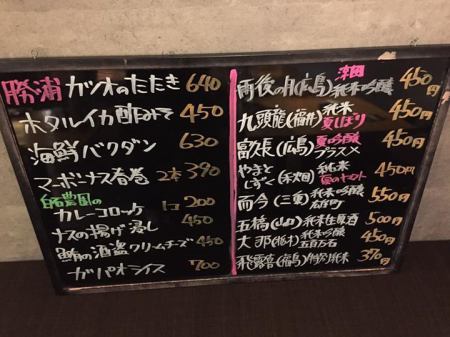 勝浦 カツオのたたき 640
ホタルイカ酢みそ 450
海鮮バクダン 630
マーボーナス春巻 2本 390
白石農園の
カレーコロッケ 1コ 200
ナスの揚げ浸し 450
鮪の酒盗クリームチーズ 450
ガパオライス 700
雨後の月(広島) 純米吟醸 450円
九頭龍(福井) 純米 夏しぼり 450円
富久長(広島) 夏吟醸 プラス× 450円
やまとしずく(秋田) 純米 夏のヤマト 450円
而今(三重) 純米吟醸 雄町 550円
五橋(山口) 純米生原酒 500円
大那(栃木) 純米吟醸 五百万石 450円
飛露喜(福島) 特別純米 390円